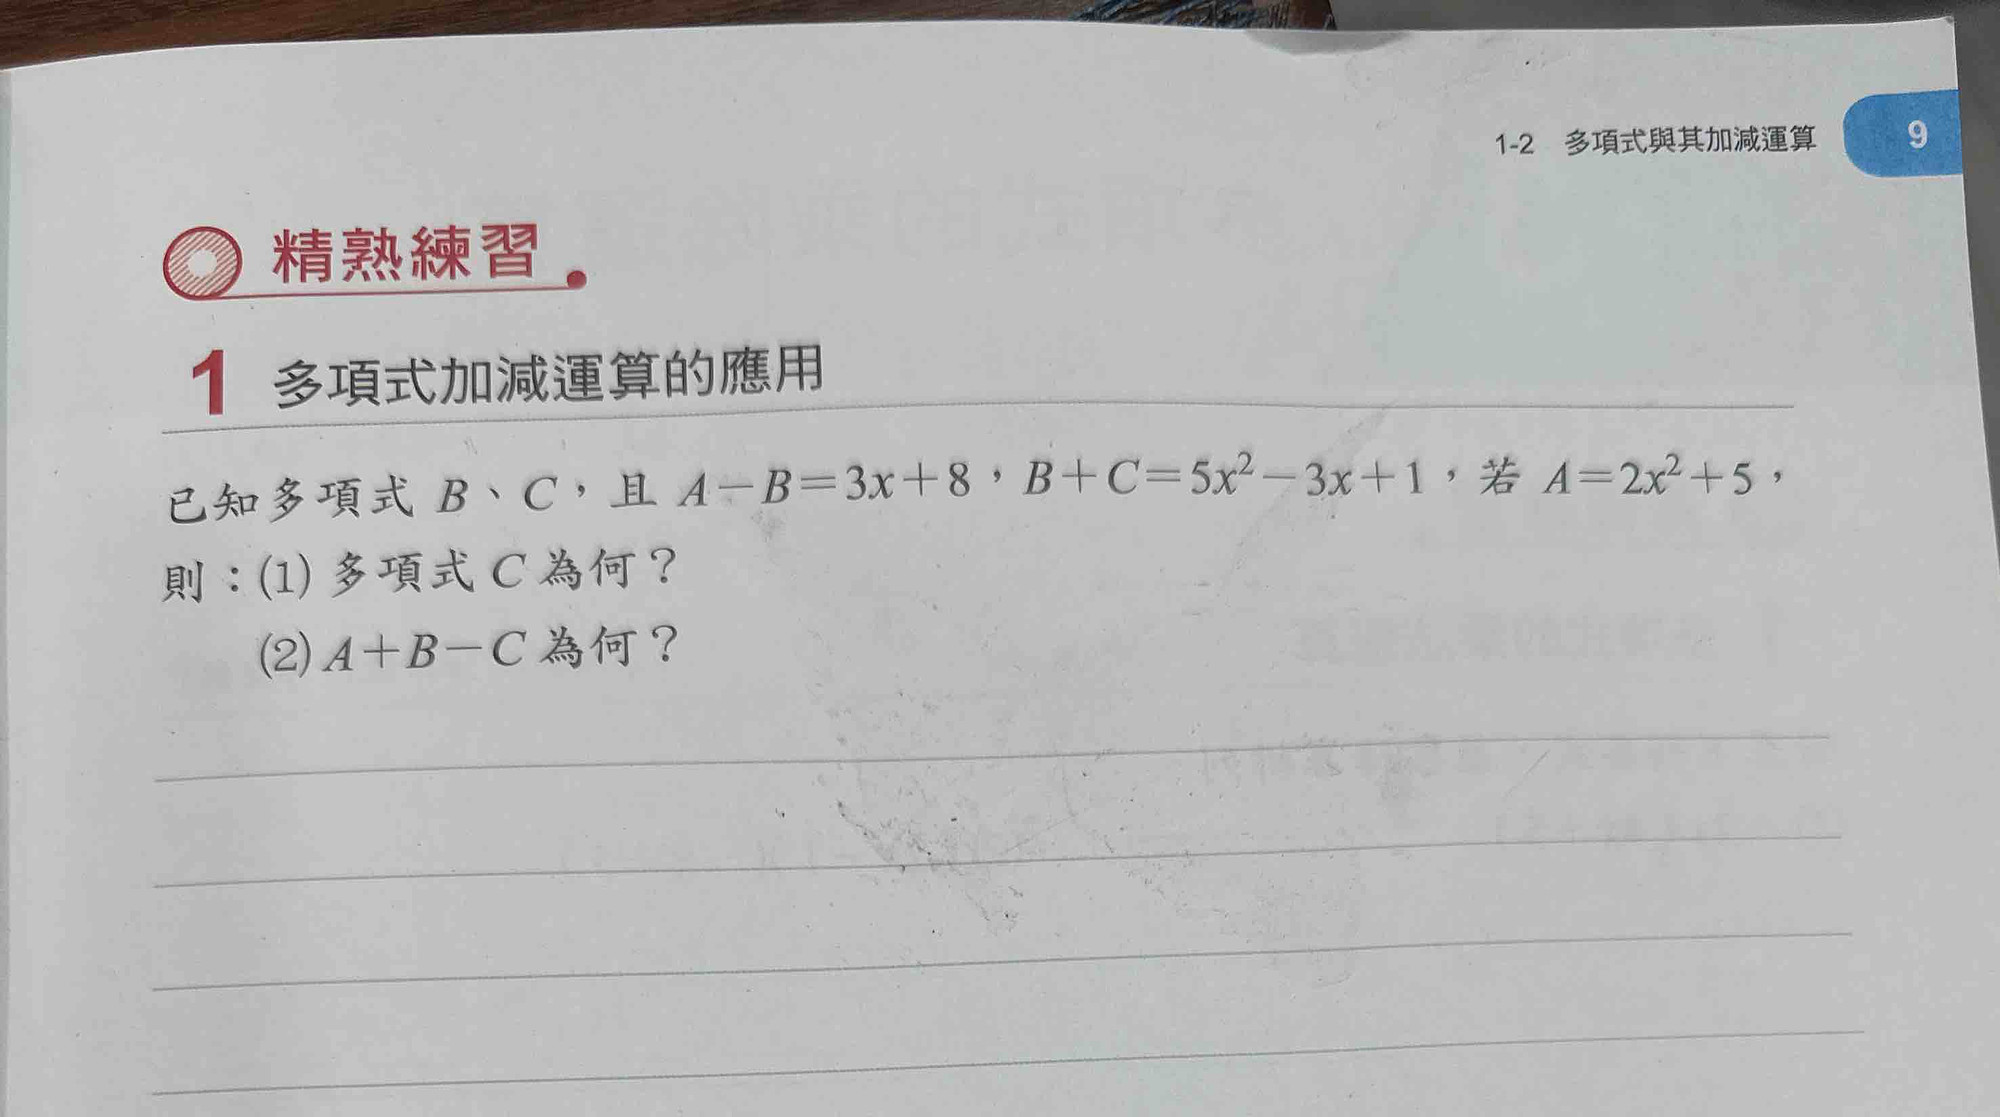 1-2 多項式與其加減運算 9
精熟練習
1 多項式加減運算的應用
已知多項式 B、C，且 A－B＝3x＋8，B＋C＝5x²－3x＋1，若 A＝2x²＋5，
則：(1) 多項式 C 為何？
(2) A＋B－C 為何？